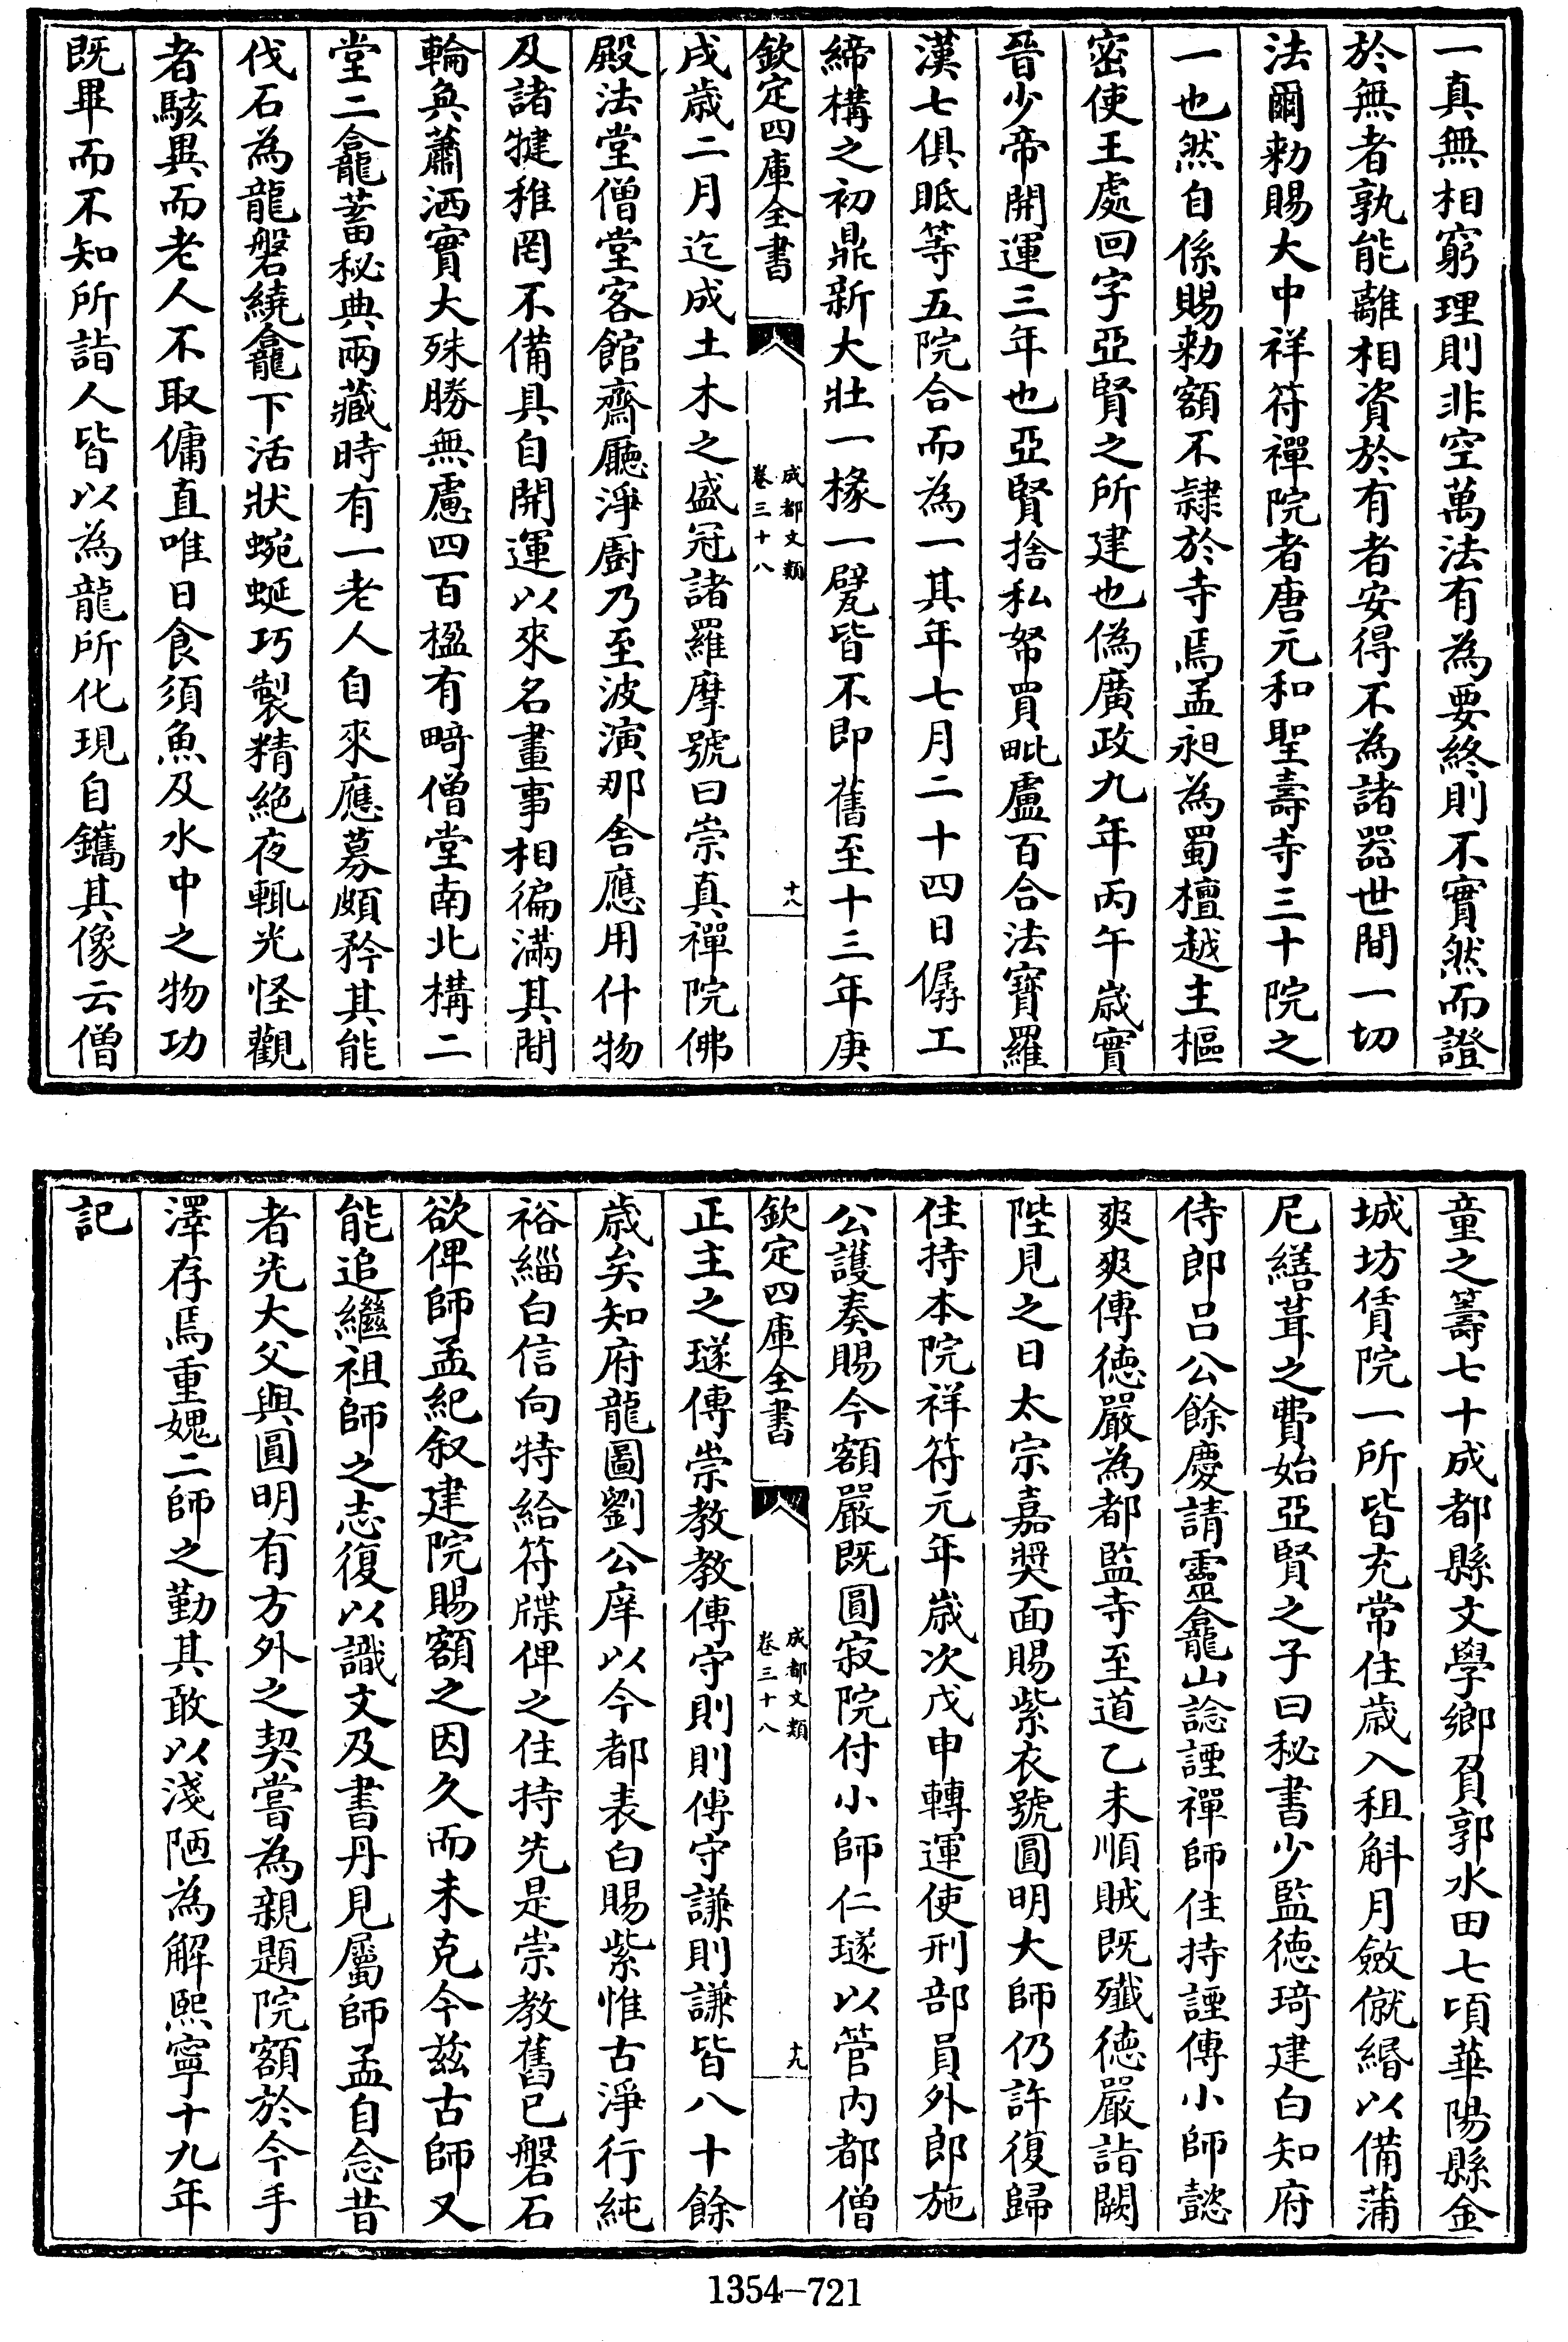 一真無相窮理則非空萬法有為要終則不實然而證
於無者孰能離相資於有者安得不為諸器世間一切
法爾勑賜大中祥符禪院者唐元和聖壽寺三十院之
一也然自係賜勑額不隷於寺焉孟昶為蜀檀越主樞
密使王處回字亞賢之所建也偽廣政九年丙午歲實
晉少帝開運三年也亞賢捨私帑買毗盧百合法寶羅
漢七俱胝等五院合而為一其年七月二十四日僝工
締構之初鼎新大壯一椽一甓皆不即舊至十三年庚
欽定四庫全書
成都文類
卷三十八
十八
戌歲二月迄成土木之盛冠諸羅摩號曰崇真禪院佛
殿法堂僧堂客館齋廳淨厨乃至波演那舍應用什物
及諸犍稚罔不備具自開運以來名畫事相徧滿其間
輪奐蕭洒實大殊勝無慮四百楹有畸僧堂南北構二
堂二龕蓄秘典兩藏時有一老人自來應募頗矜其能
伐石為龍磐繞龕下活狀蜿蜒巧製精絕夜輒光怪觀
者駭異而老人不取傭直唯日食須魚及水中之物功
既畢而不知所詣人皆以為龍所化現自鑴其像云僧
童之籌七十成都縣文學鄉負郭水田七頃華陽縣金
城坊賃院一所皆充常住歲入租斛月斂僦緡以備蒲
尼繕葺之費始亞賢之子曰秘書少監德琦建白知府
侍郎呂公餘慶請靈龕山諗諲禪師住持諲傳小師懿
爽爽傳德嚴為都監寺至道乙未順賊既殲德嚴詣闕
陛見之日太宗嘉奬面賜紫衣號圓明大師仍許復歸
住持本院祥符元年歲次戊申轉運使刑部員外郎施
公護奏賜今額嚴既圓寂院付小師仁璲以管内都僧
欽定四庫全書
成都文類
卷三十八
十九
正主之璲傳崇教教傳守則則傳守謙則謙皆八十餘
歲矣知府龍圖劉公庠以今都表白賜紫惟古淨行純
裕緇白信向特給符牒俾之住持先是崇教舊已磐石
欲俾師孟紀叙建院賜額之因久而未克今兹古師又
能追繼祖師之志復以識文及書丹見屬師孟自念昔
者先大父與圓明有方外之契嘗為親題院額於今手
澤存焉重媿二師之勤其敢以淺陋為解熙寧十九年
記
1354-721